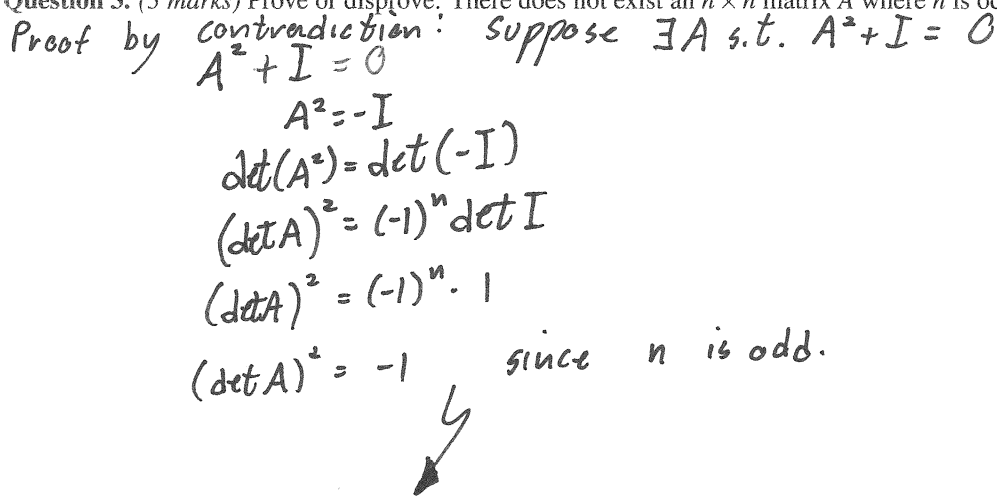 Question 3. (5 marks) Prove or disprove: There does not exist an n × n matrix A where n is
Proof by contradiction: Suppose ∃A s.t. A² + I = 0
A² + I = 0
A² = -I
det(A²) = det(-I)
(det A)² = (-1)ⁿ det I
(det A)² = (-1)ⁿ · 1
(det A)² = -1 since n is odd.